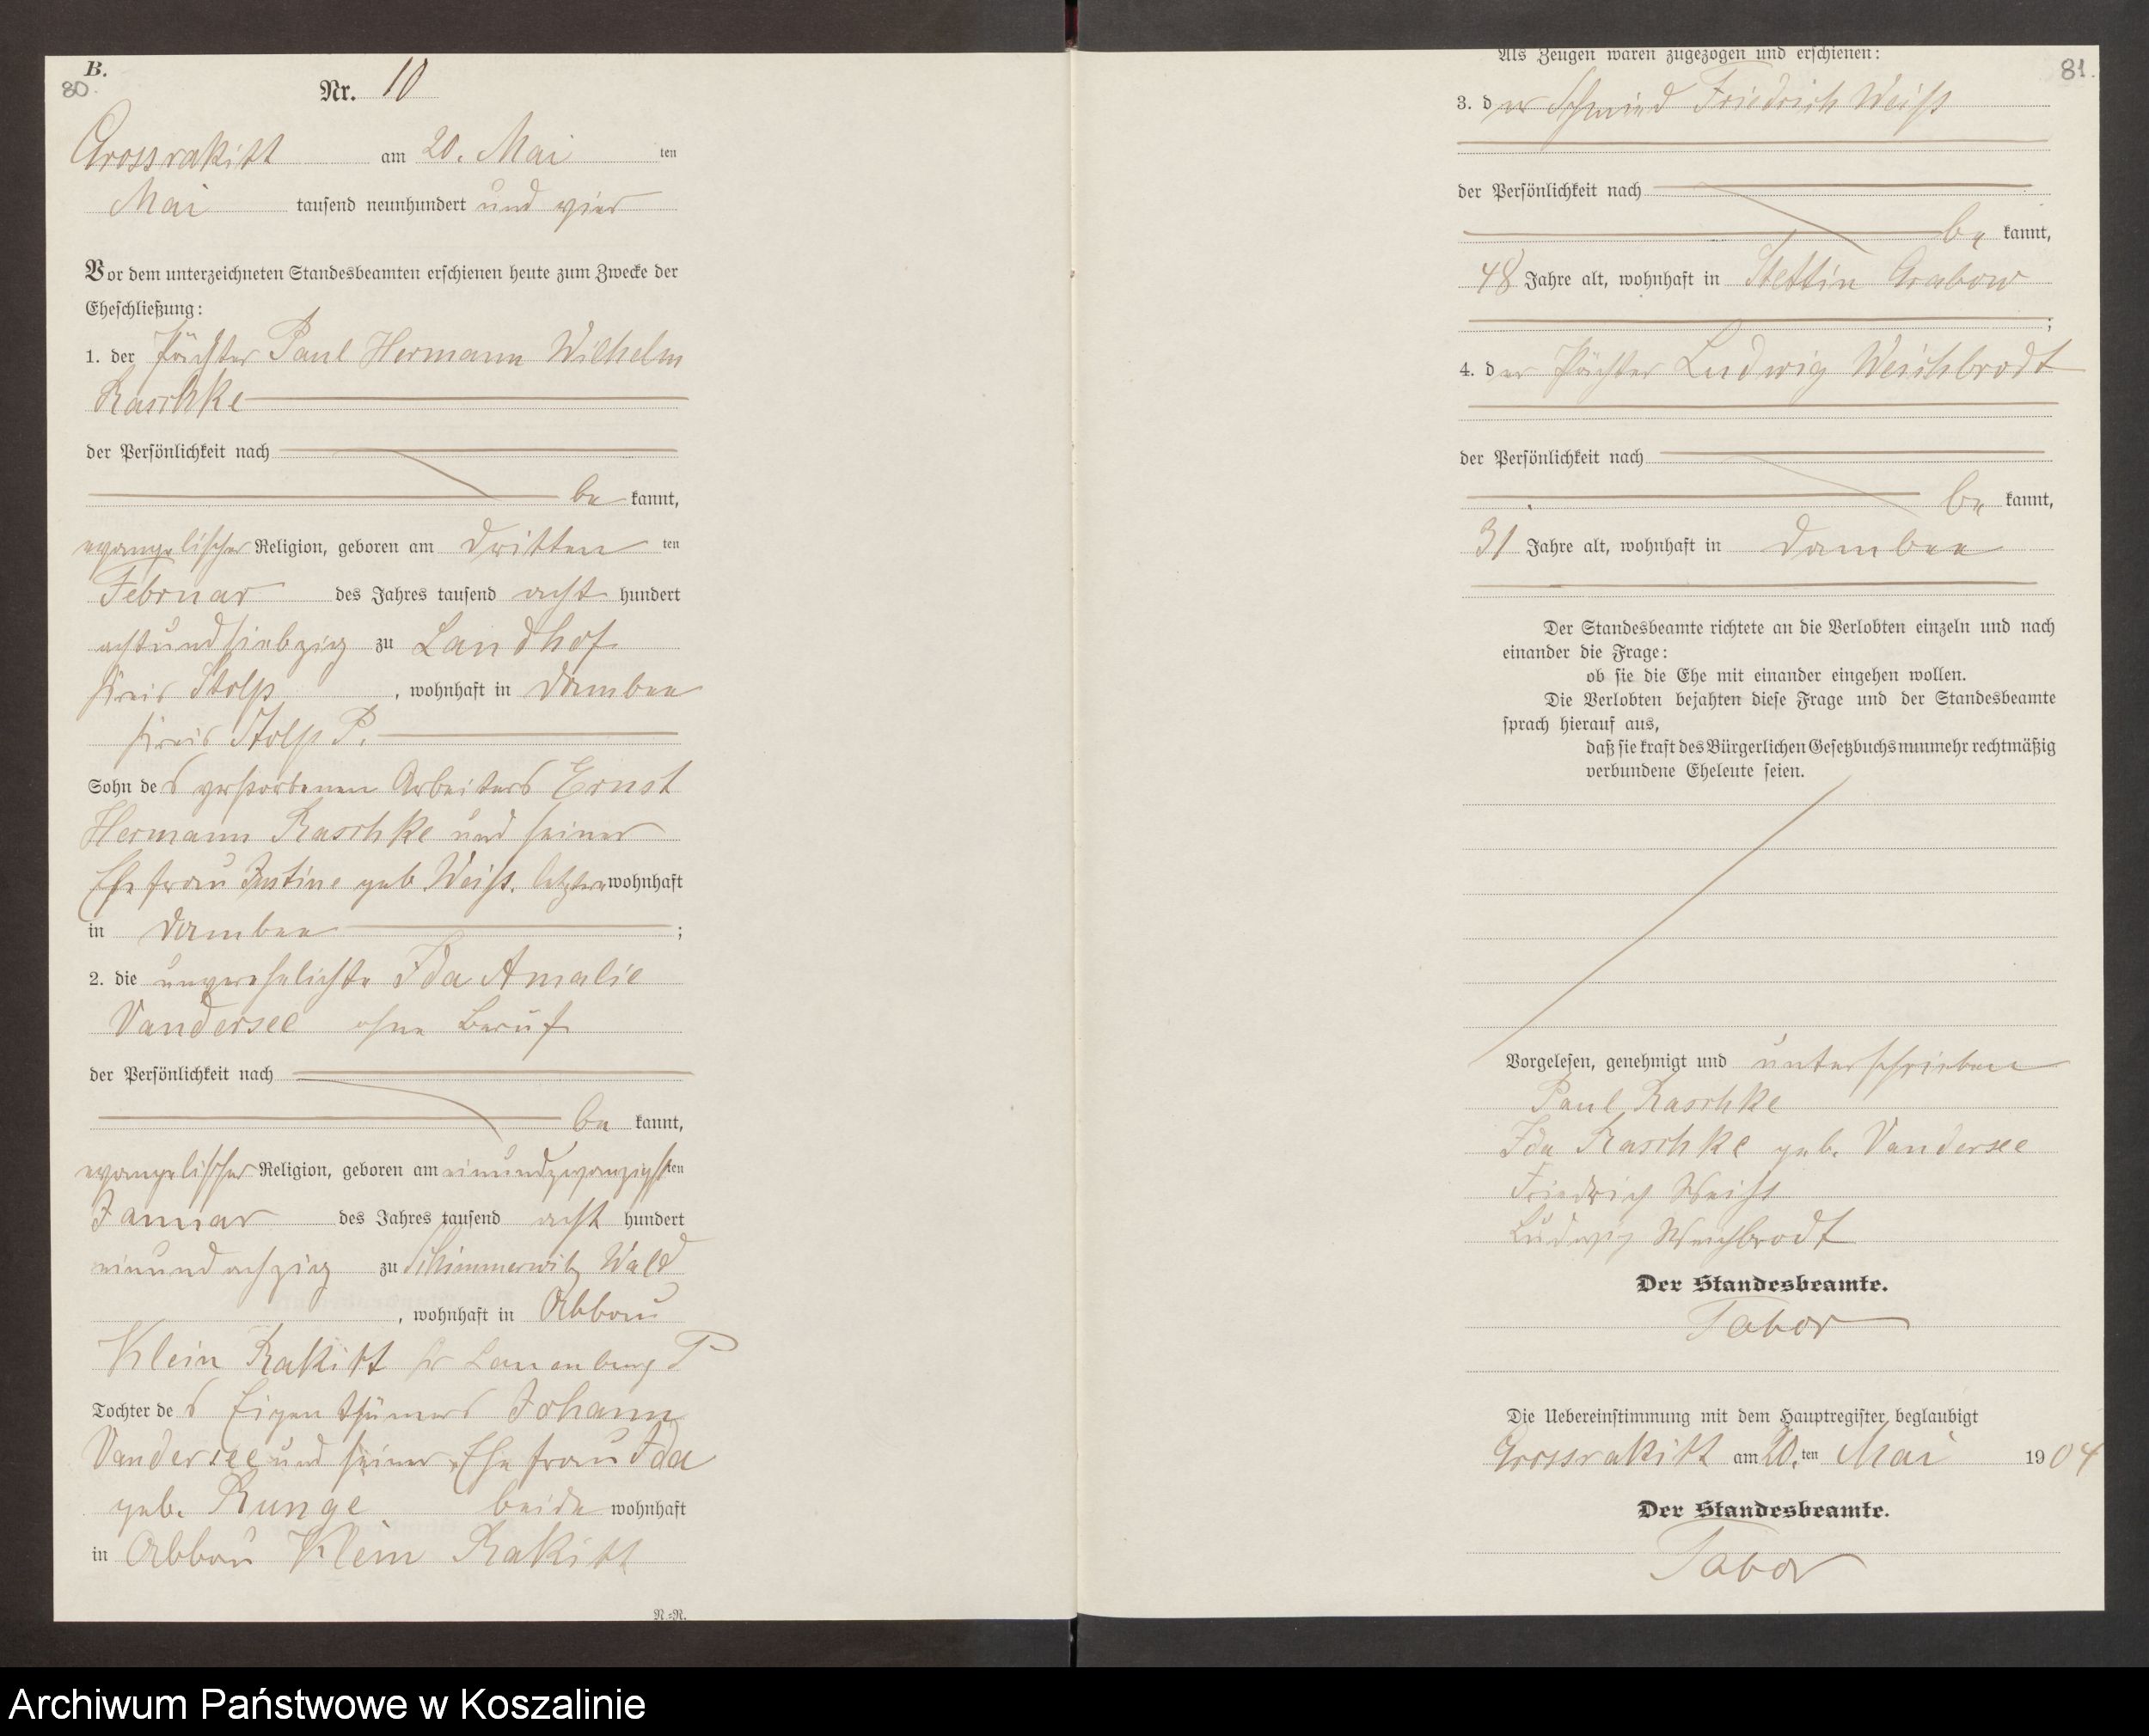 B.
80.
Nr. 10
Grossrakitt am 20. Mai ten
Mai tausend neunhundert und vier
Vor dem unterzeichneten Standesbeamten erschienen heute zum Zwecke der
Eheschließung:
1. der Pächter Paul Hermann Wilhelm
Raschke
der Persönlichkeit nach
be kannt,
evangelischer Religion, geboren am dritten ten
Februar des Jahres tausend acht hundert
achtundsiebzig zu Landhof
Kreis Stolp, wohnhaft in Dambee
Kreis Stolp P.
Sohn des verstorbenen Arbeiters Ernst
Hermann Raschke und seiner
Ehefrau Justine geb. Weiß. letztere wohnhaft
in Dambee ;
2. die unverehelichte Ida Amalie
Vandersee ohne Beruf
der Persönlichkeit nach
be kannt,
evangelischer Religion, geboren am einundzwanzigsten
Januar des Jahres tausend acht hundert
einundachzig zu Schimmerwitz Wald
, wohnhaft in Abbau
Klein Rakitt Kr Lauenburg P
Tochter des Eigenthümers Johann
Vandersee und seiner Ehefrau Ida
geb. Runge beide wohnhaft
in Abbau Klein Rakitt
N.-N.
81.
Als Zeugen waren zugezogen und erschienen:
3. der Schmied Friedrich Weiß
der Persönlichkeit nach
be kannt,
48 Jahre alt, wohnhaft in Stettin Grabow
;
4. der Pächter Ludwig Weichbrodt
der Persönlichkeit nach
be kannt,
31 Jahre alt, wohnhaft in Dambee
Der Standesbeamte richtete an die Verlobten einzeln und nach
einander die Frage:
ob sie die Ehe mit einander eingehen wollen.
Die Verlobten bejahten diese Frage und der Standesbeamte
sprach hierauf aus,
daß sie kraft des Bürgerlichen Gesetzbuchs nunmehr rechtmäßig
verbundene Eheleute seien.
Vorgelesen, genehmigt und unterschrieben
Paul Raschke
Ida Raschke geb. Vandersee
Friedrich Weiß
Ludwig Weichbrodt
Der Standesbeamte.
Tabor
Die Uebereinstimmung mit dem Hauptregister beglaubigt
Grossrakitt am 20. ten Mai 1904
Der Standesbeamte.
Tabor
Archiwum Państwowe w Koszalinie